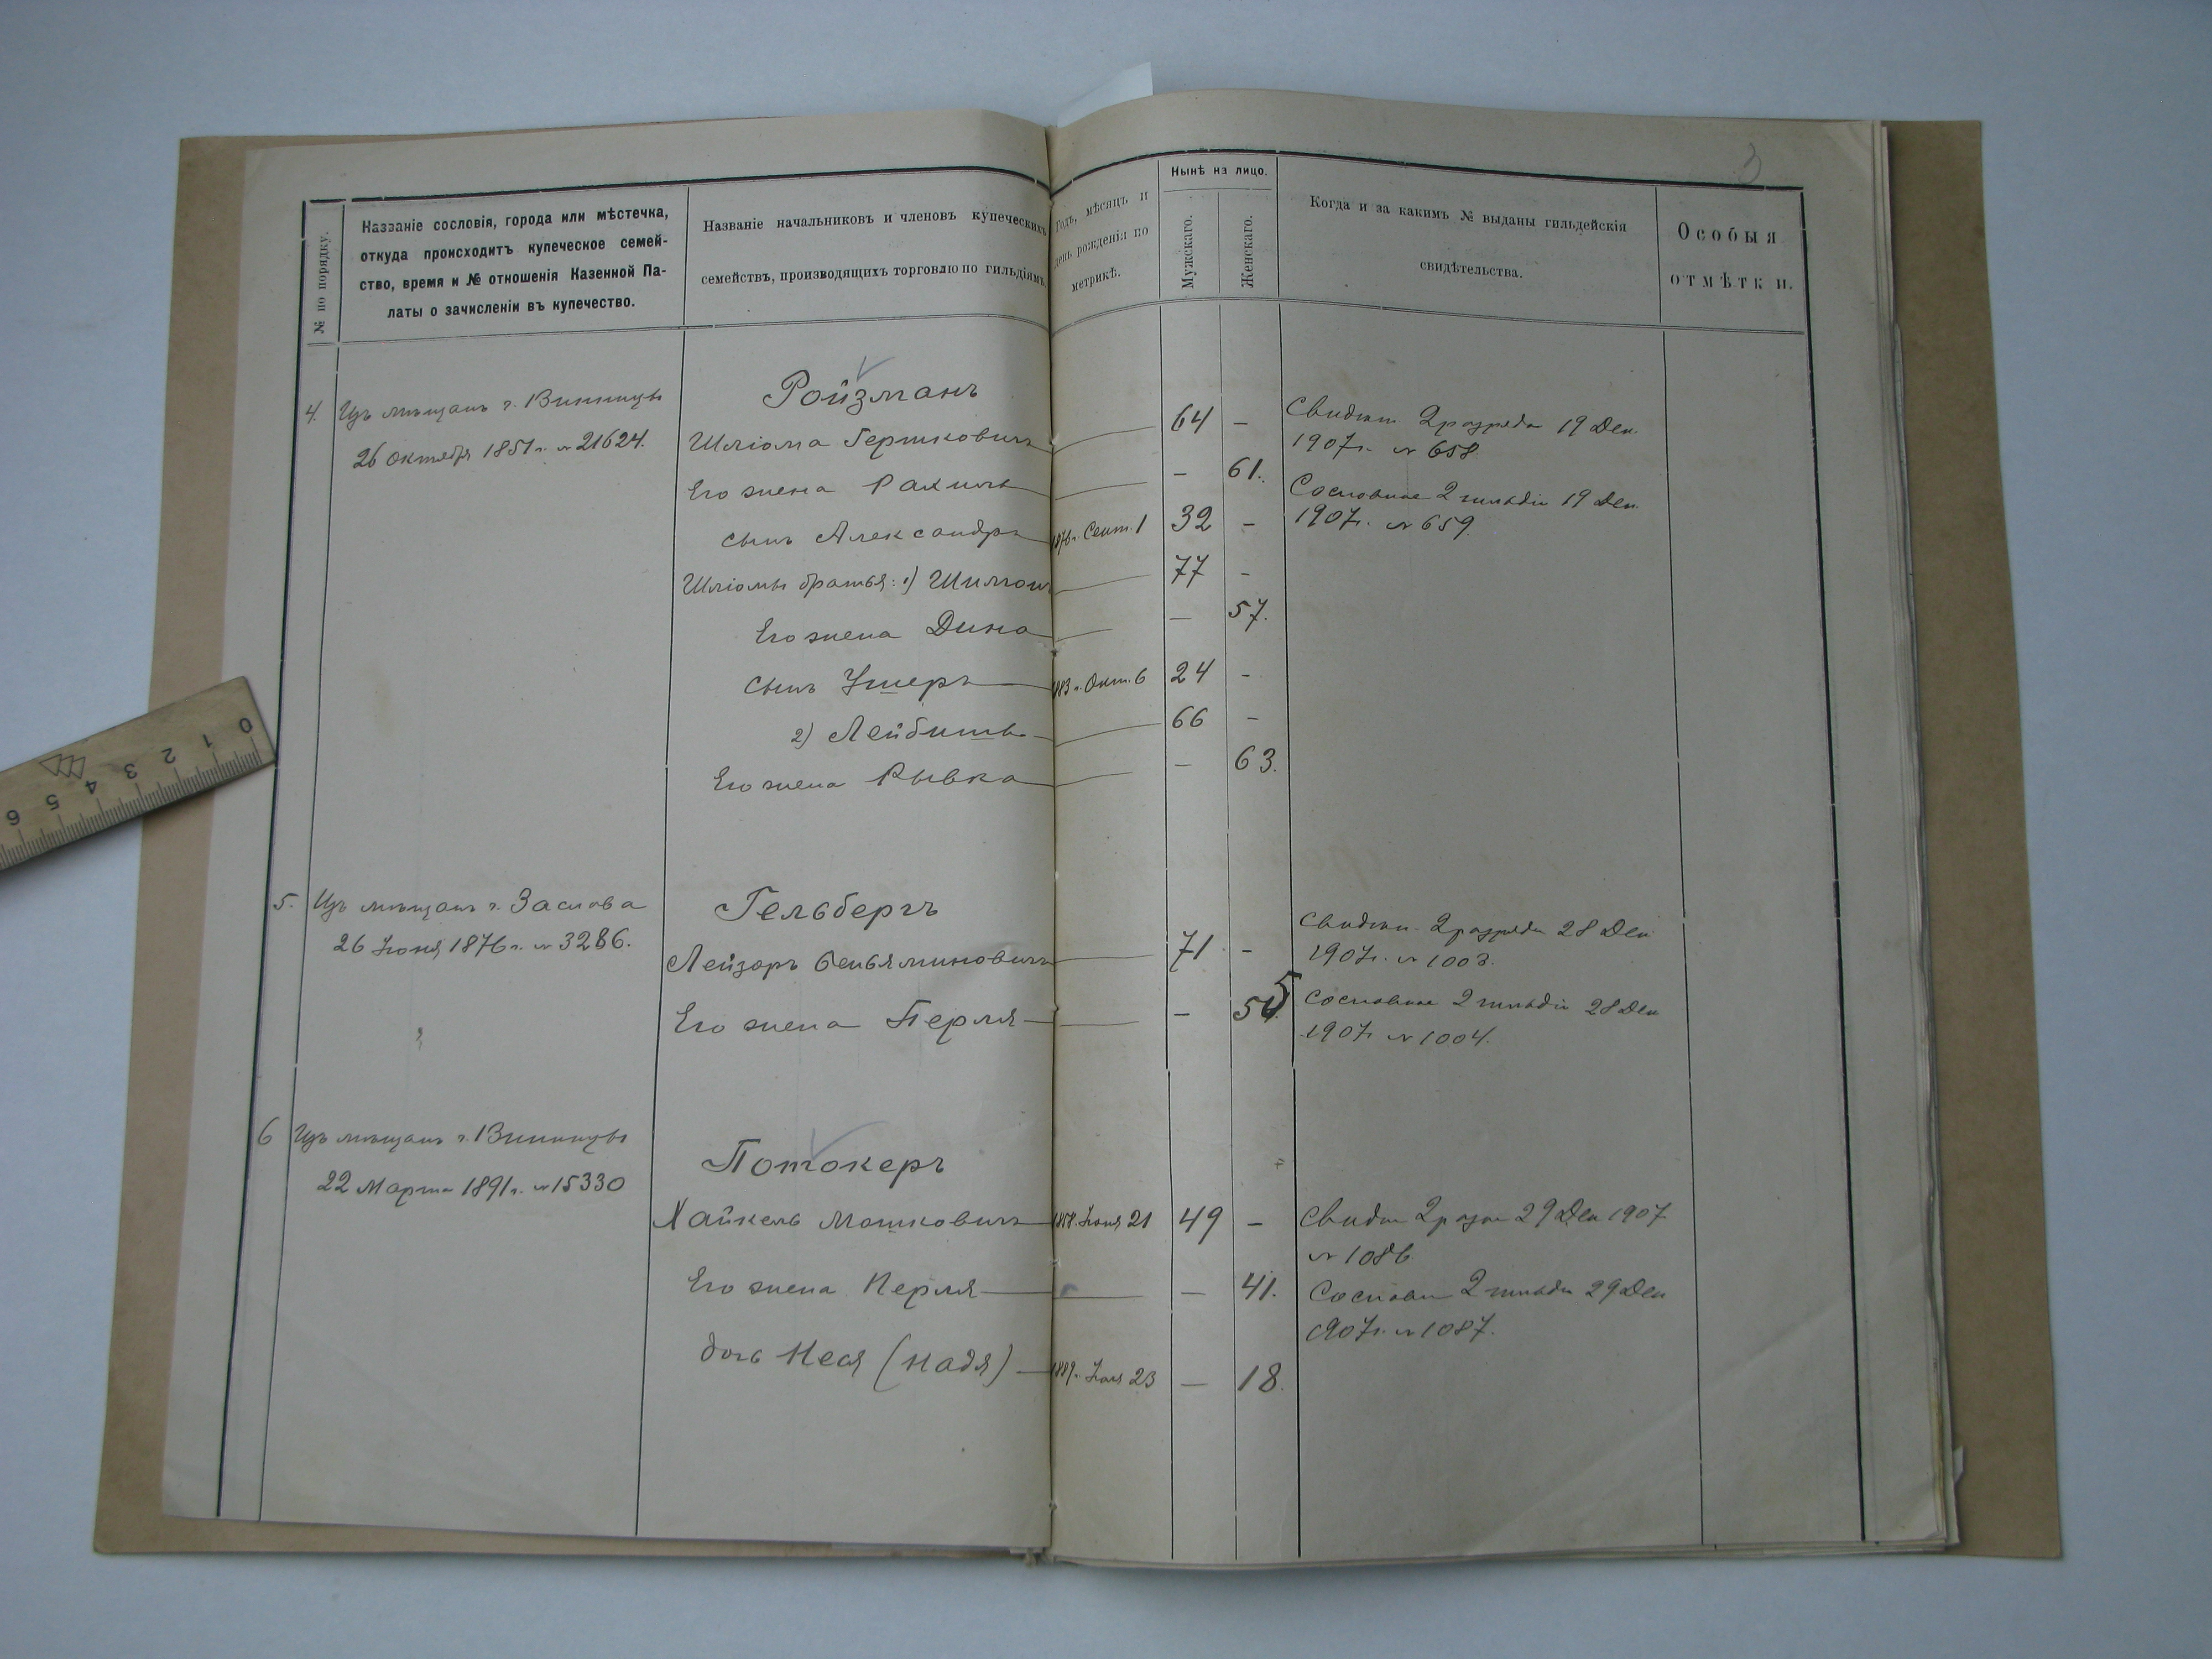 № по порядку.
Названіе сословія, города или мѣстечка,
откуда происходитъ купеческое семей-
ство, время и № отношенія Казенной Па-
латы о зачисленіи въ купечество.
Названіе начальниковъ и членовъ купеческихъ
семействъ, производящихъ торговлю по гильдіямъ
Годъ, мѣсяцъ и
день рожденія по
метрикѣ.
Нынѣ на лицо.
Мужскаго.
Женскаго.
Когда и за какимъ № выданы гильдейскія
свидѣтельства.
Особыя
отмѣтки.
3
4. Изъ мѣщанъ г. Винницы
26 октября 1851 г. № 21624.
Ройзманъ
Шліома Гершковичъ 64 –
Его жена Рахиль – 61.
сынъ Александръ 1876 г. Сент. 1 32 –
Шліомы братья: 1) Шимонъ 77 –
Его жена Дина – 57.
сынъ Ушеръ 1883 г. Окт. 6 24 –
2) Лейбишъ 66 –
Его жена Рывка – 63.
Свидѣт 2 разряда 19 Дек.
1907 г. № 658
Сословное 2 гильдіи 19 Дек.
1907 г. № 659.
5. Изъ мѣщанъ г. Заслава
26 Іюня 1876 г. № 3286.
Гельбергъ
Лейзоръ Беньяминовичъ 71 –
Его жена Перля – 5
Свидѣт. 2 разряда 28 Дек.
1907 г. № 1003.
Сословное 2 гильдіи 28 Дек
1907 г. № 1004.
6 Изъ мѣщанъ г. Винницы
22 Марта 1891 г. № 15330
Потокеръ
Хайкель Мошковичъ 1858. Іюня 21 49 –
Его жена Перля – 41.
дочь Неся (Надя) 1889. 23 – 18.
Свидѣт 2 разр 29 Дек 1907
№ 1086
Сословн 2 гильди 29 Дек
1907 г. № 1087.
0 1 2 3 4 5 6